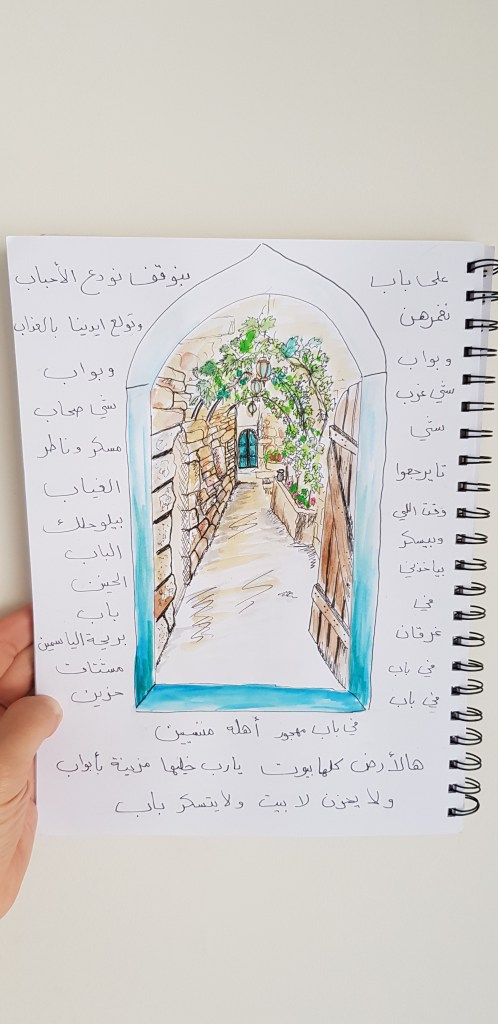 على باب بنوقف نودع الأحباب
نغمرهن وتولع ايدينا بالعذاب
وبواب وبواب
شي غرب شي صحاب
شي مسكر وناطر
تايرجعوا الغياب
وقت اللي بيلوحلك
وبيسكر الباب
بياخدني الحنين
في باب
غرقان بريحة الياسمين
في باب مشتاق
في باب حزين
في باب مهجور أهله منسيين
هالأرض كلها بيوت يارب خليها مزينة بأبواب
ولا يحزن لا بيت ولا يتسكر باب